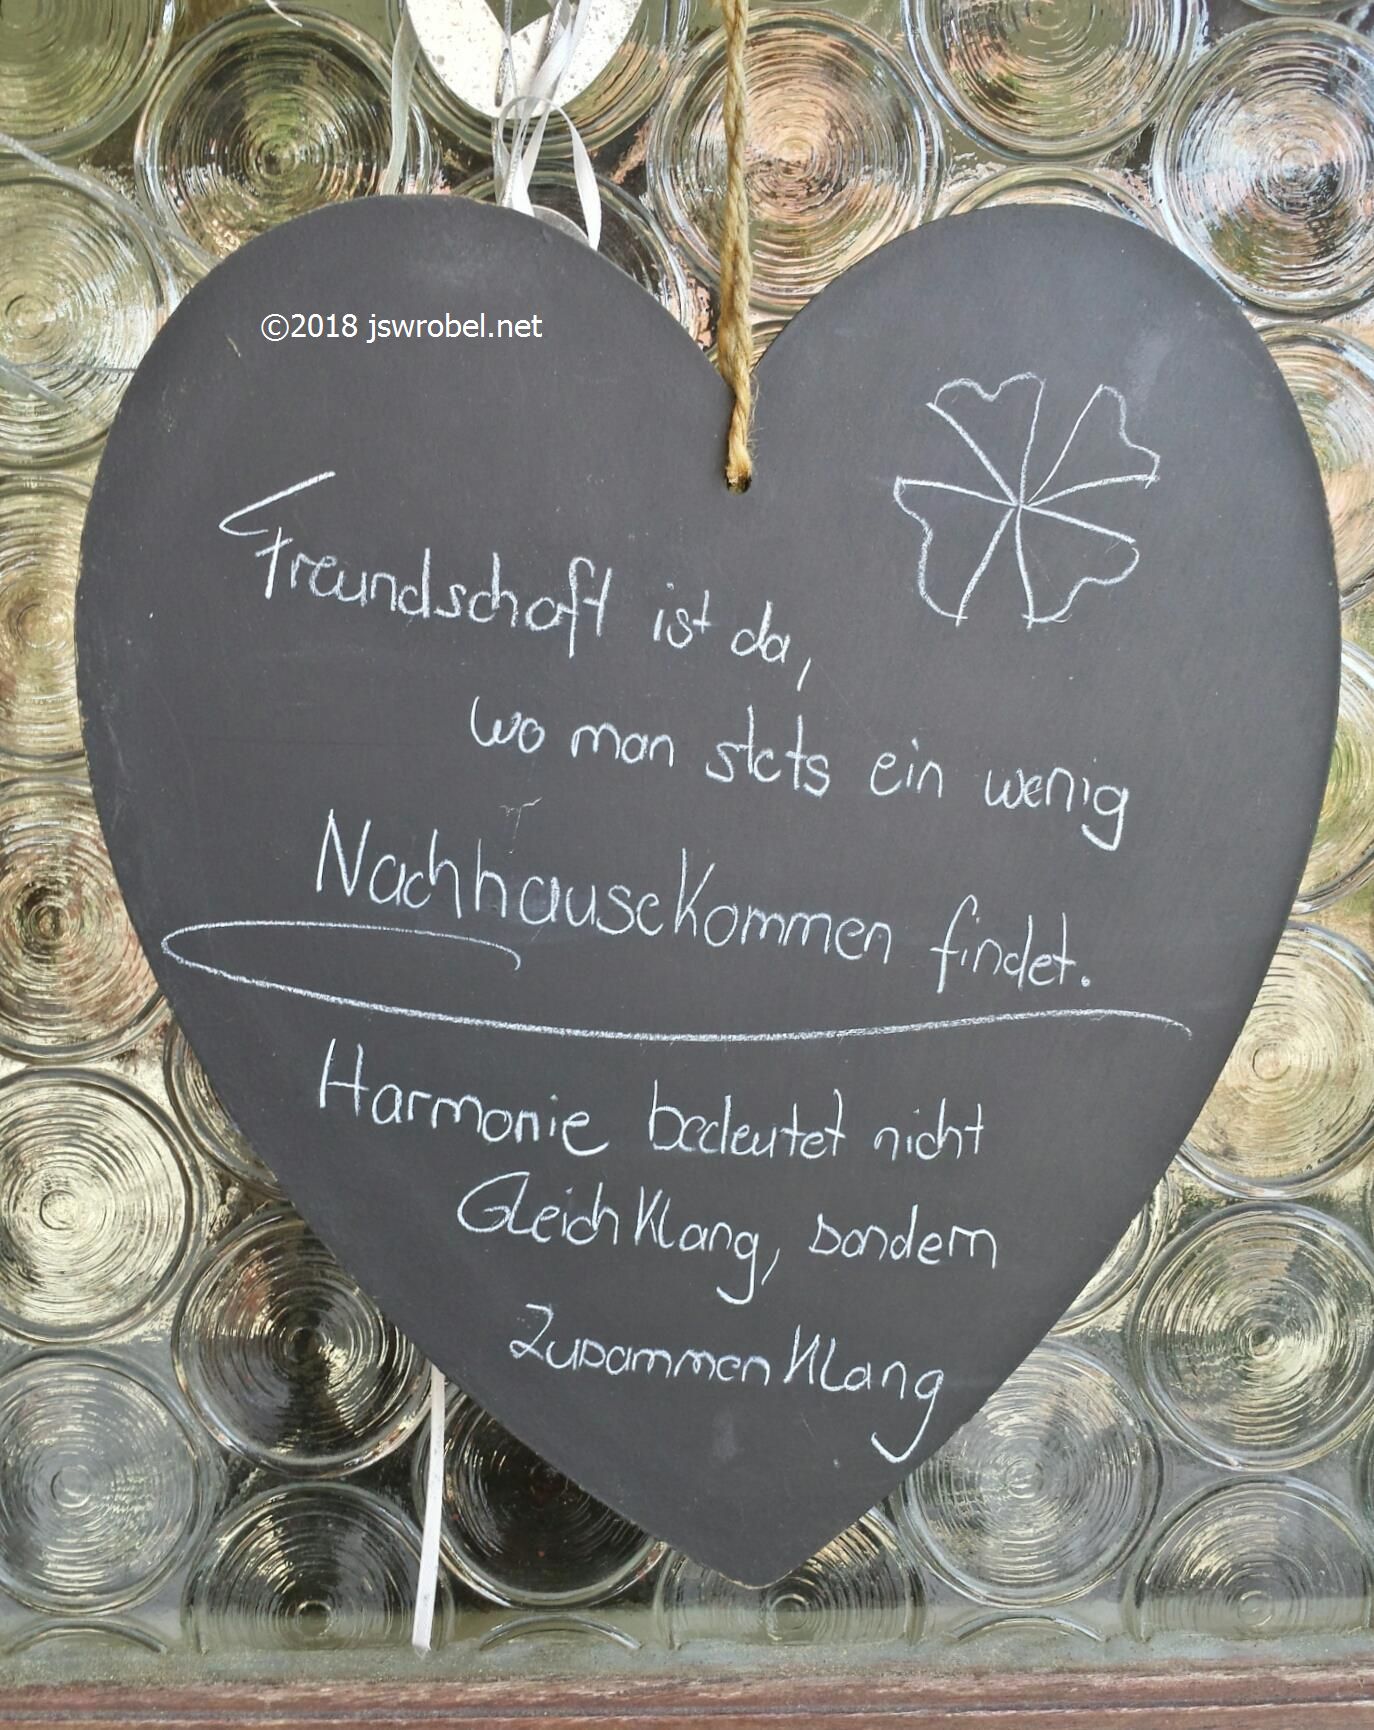 ©2018 jswrobel.net
Freundschaft ist da,
wo man stets ein wenig
NachhauseKommen findet.
Harmonie bedeutet nicht
GleichKlang, sondern
ZusammenKlang